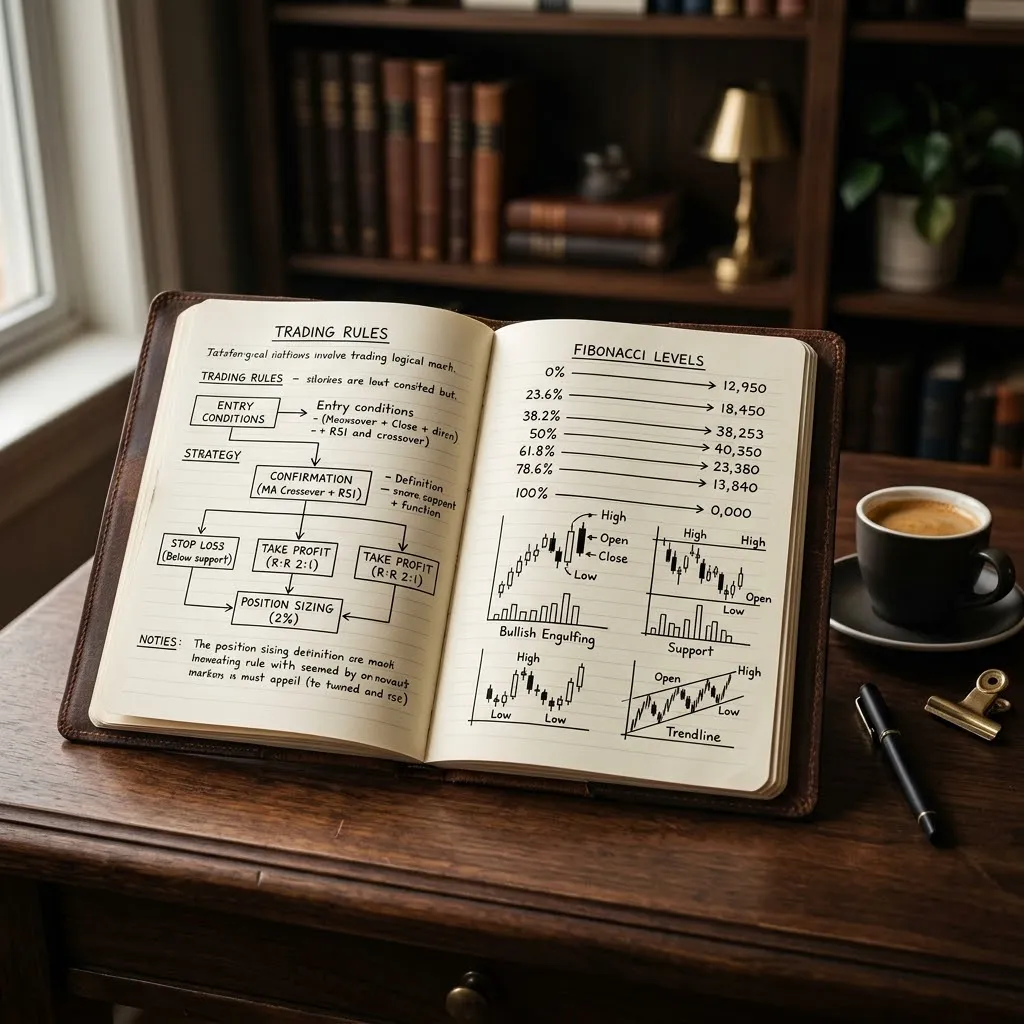 TRADING RULES
involve trading logical mach.
TRADING RULES – are but but.
ENTRY
CONDITIONS
Entry conditions
- (Meovsover + Close + diren)
- + RSI and crossover)
STRATEGY
CONFIRMATION
(MA Crossover + RSI)
- Definition
- snore, suppent
+ function
STOP LOSS
(Below support)
TAKE PROFIT
(R:R 2:1)
TAKE PROFIT
(R:R 2:1)
POSITION SIZING
(2%)
NOTIES: The position sising definition cre maok
Inoweating rule with seemed by on novaut
markors is must appeil (te tunned and rse)
FIBONACCI LEVELS
0% 12,950
23.6% 18,450
38.2% 38,253
50% 40,350
61.8% 23,380
78.6% 13,840
100% 0,000
High
Open
Close
Low
Bullish Engulfing
High High
Open
Low
Support
High
Low Low
Open High
Low
Trendline